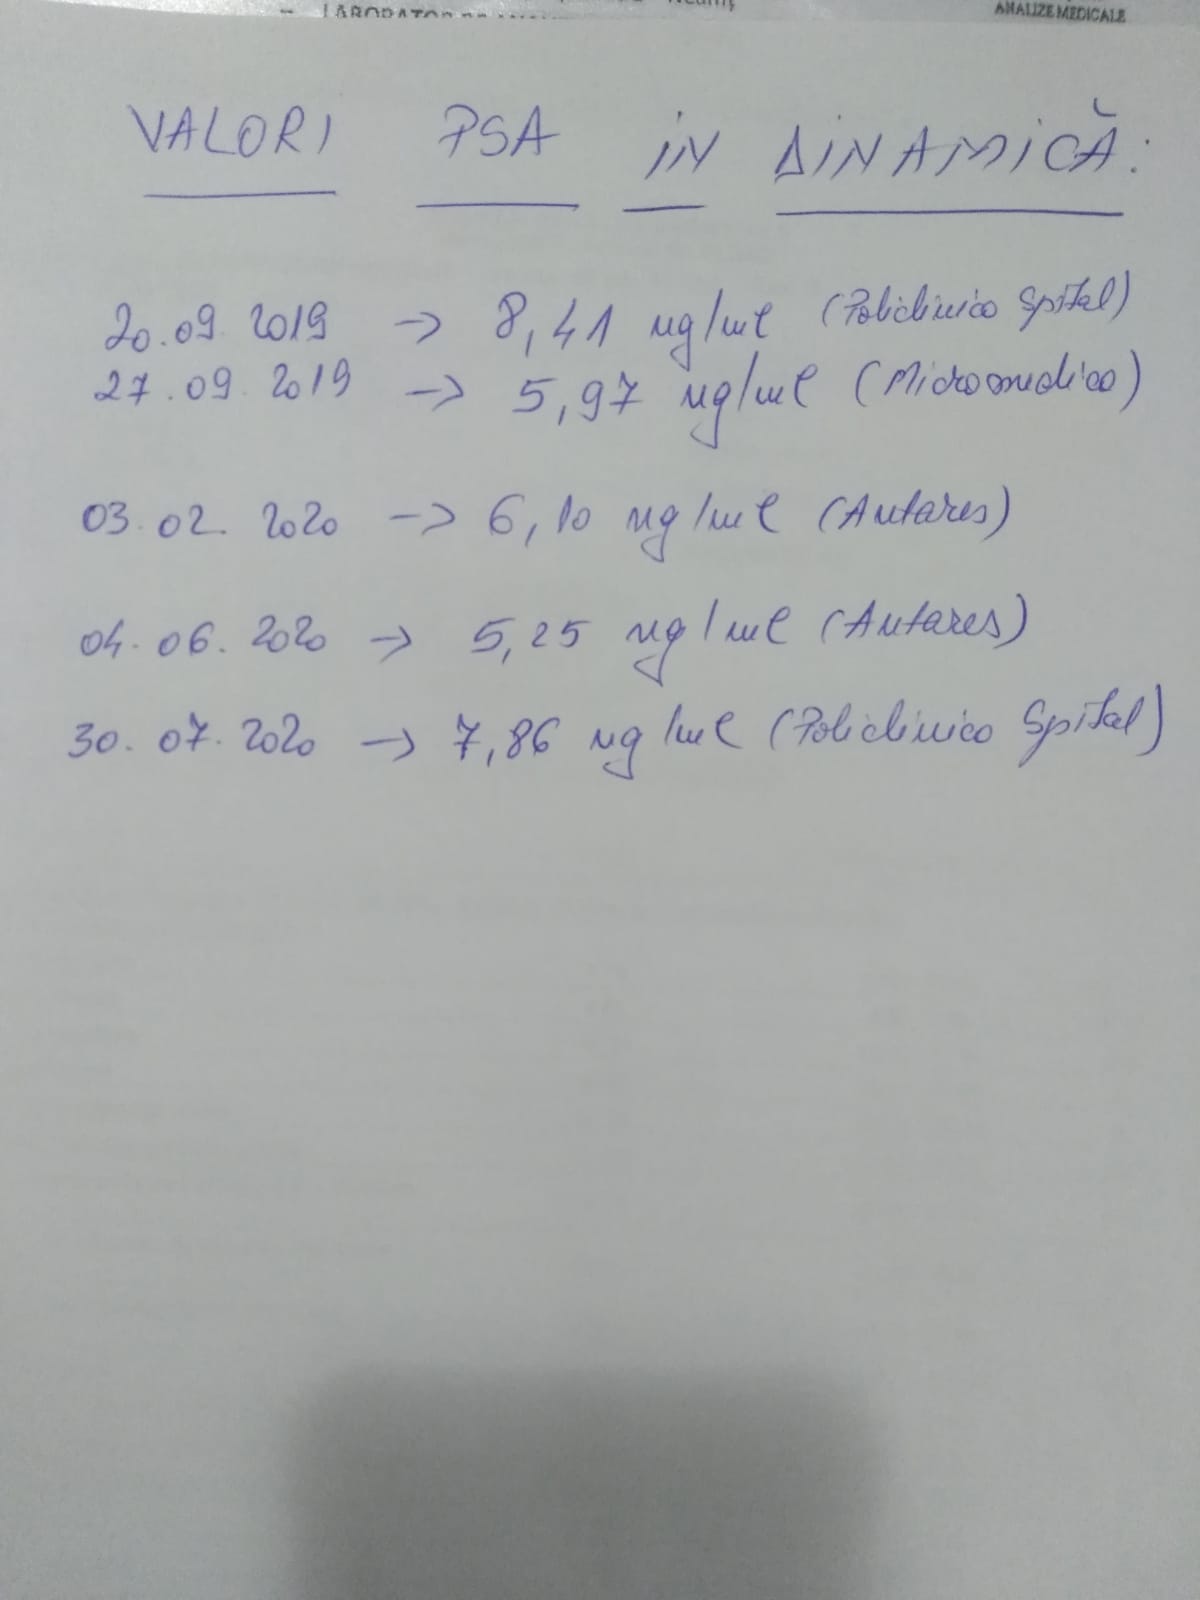 ANALIZE MEDICALE
VALORI PSA IN DINAMICĂ:
20.09.2019 -> 8,41 ng/ml (Policlinica Spital)
27.09.2019 -> 5,97 ng/ml (Micromedica)
03.02.2020 -> 6,10 ng/ml (Antares)
04.06.2020 -> 5,25 ng/ml (Antares)
30.07.2020 -> 7,86 ng/ml (Policlinica Spital)